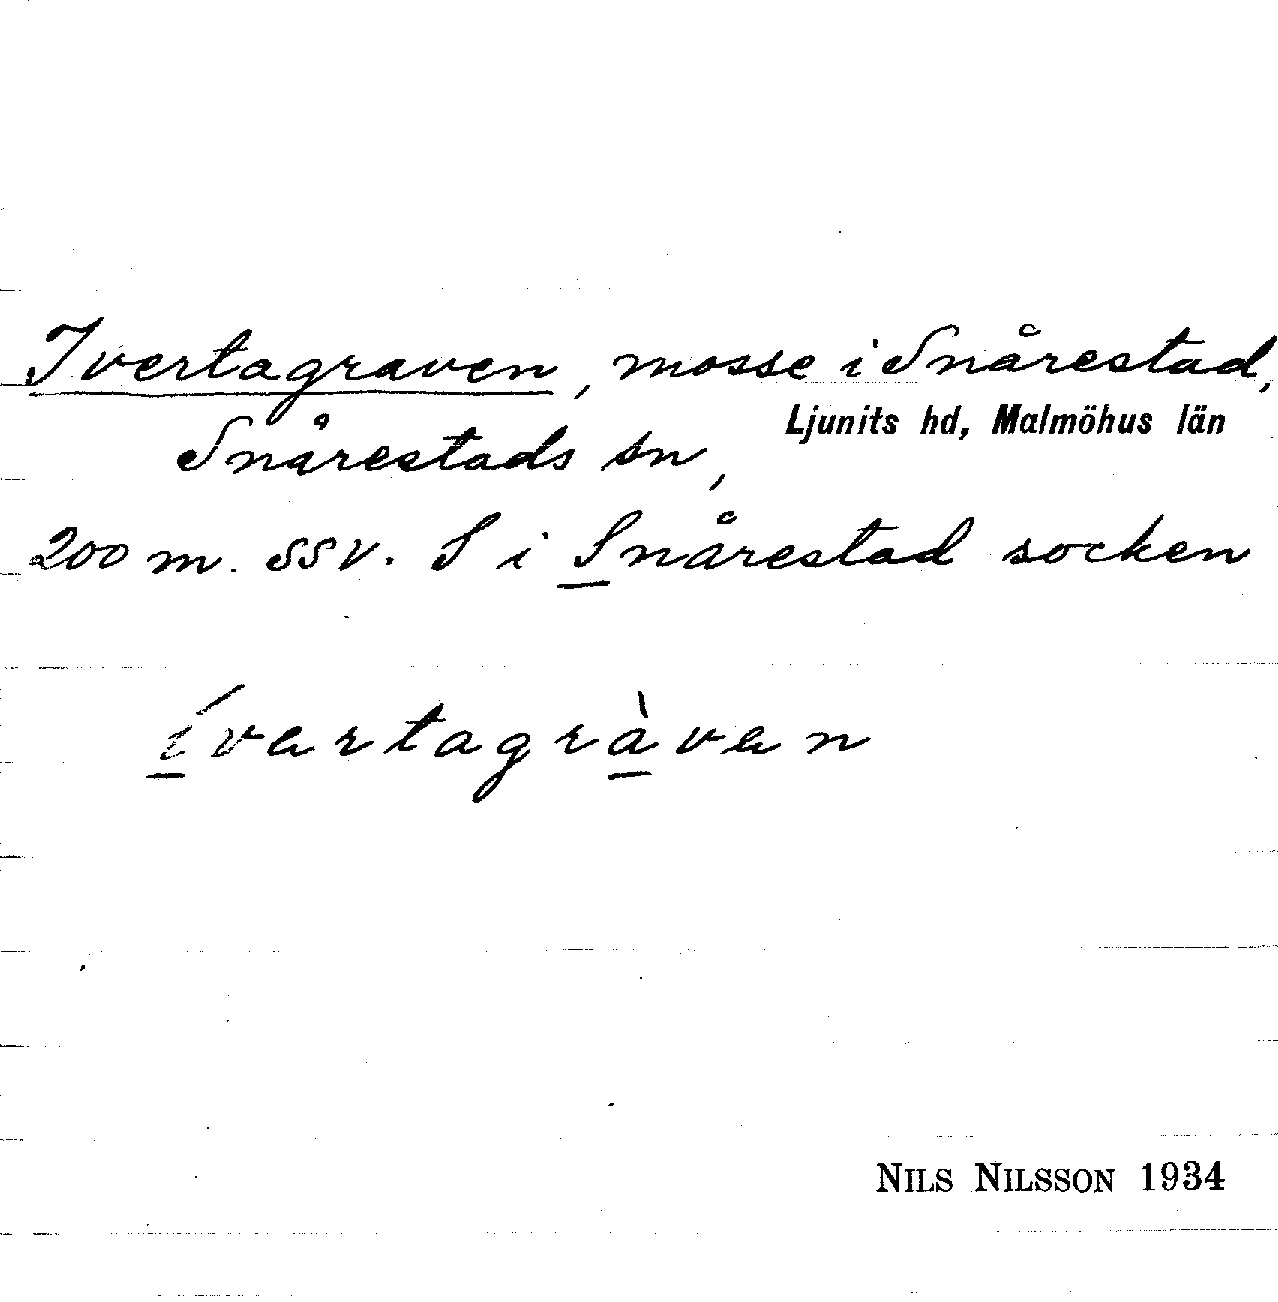 Ivertagraven, mosse i Snårestad,
Ljunits hd, Malmöhus län
Snårestads sn,
200 m. SSV. S i Snårestad socken
ívartagràvan
NILS NILSSON 1934